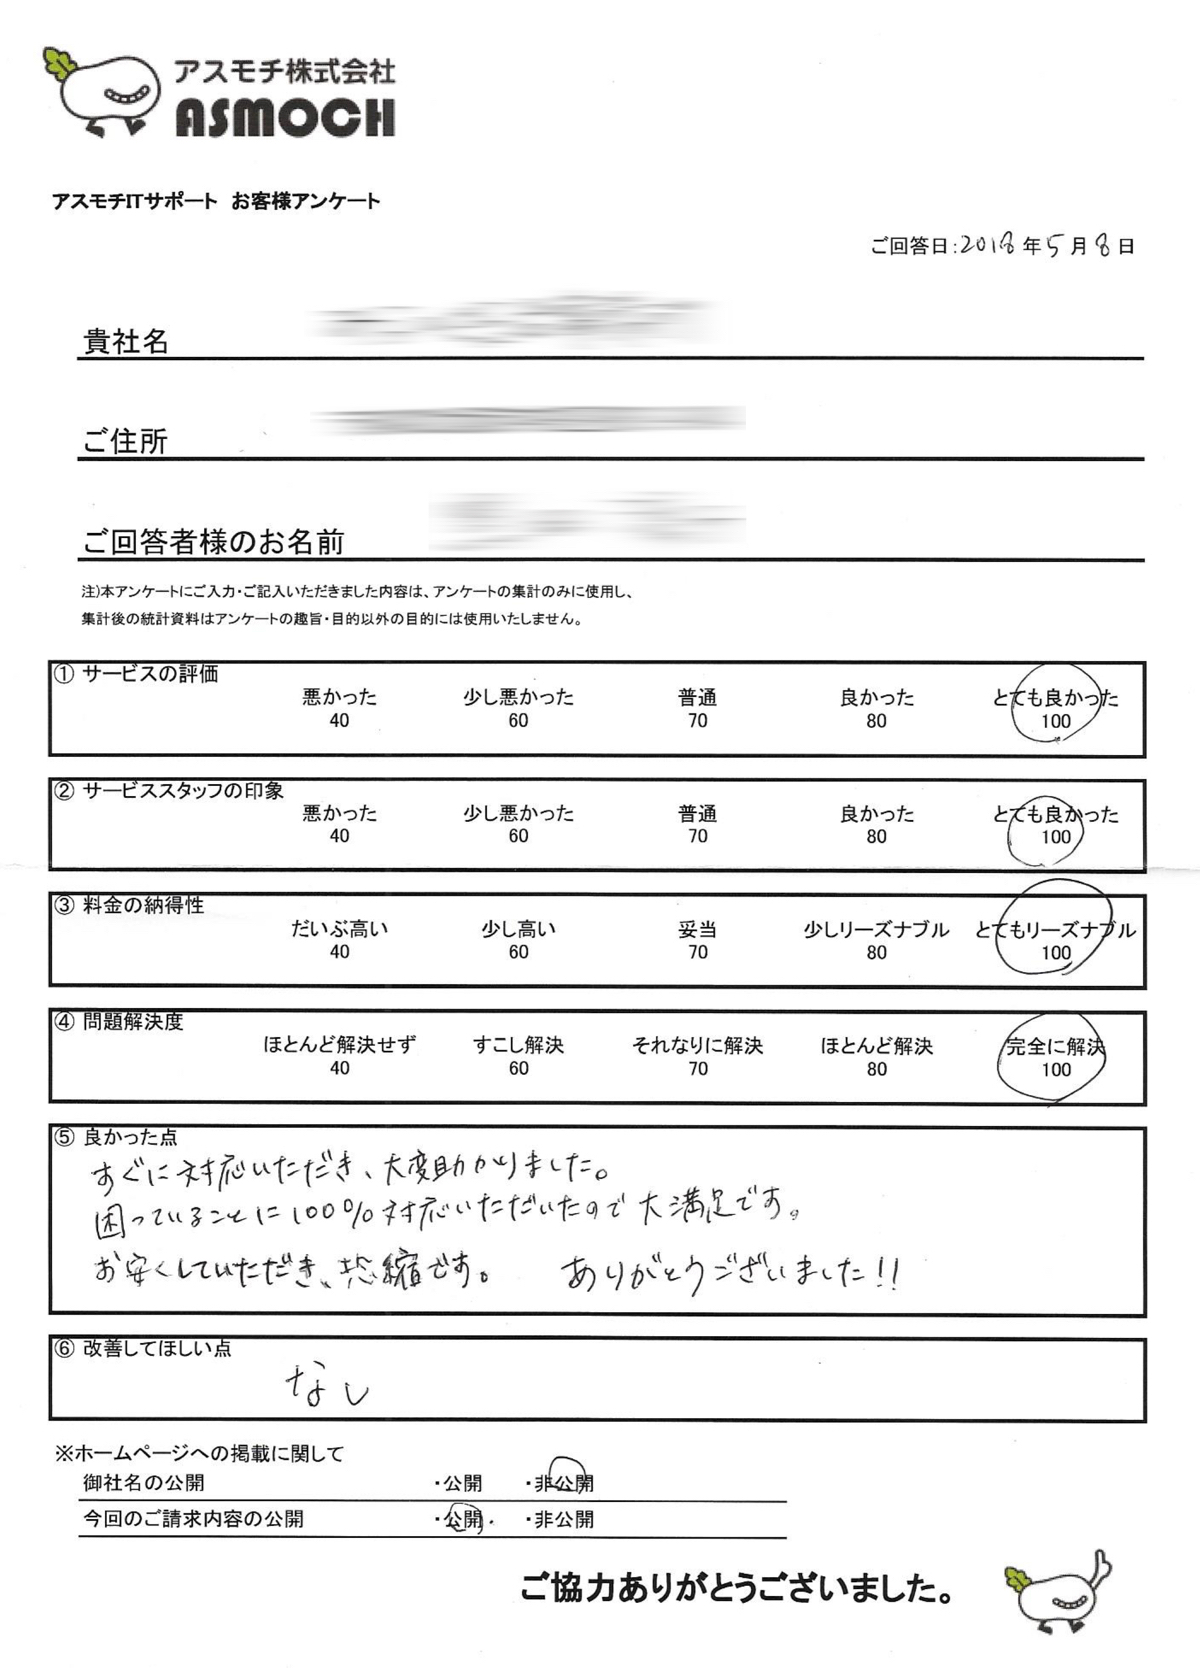 アスモチ株式会社
ASMOCH
アスモチITサポート お客様アンケート
ご回答日:2018年5月8日
貴社名
ご住所
ご回答者様のお名前
注)本アンケートにご入力・ご記入いただきました内容は、アンケートの集計のみに使用し、
集計後の統計資料はアンケートの趣旨・目的以外の目的には使用いたしません。
① サービスの評価
悪かった 少し悪かった 普通 良かった とても良かった
40 60 70 80 100
② サービススタッフの印象
悪かった 少し悪かった 普通 良かった とても良かった
40 60 70 80 100
③ 料金の納得性
だいぶ高い 少し高い 妥当 少しリーズナブル とてもリーズナブル
40 60 70 80 100
④ 問題解決度
ほとんど解決せず すこし解決 それなりに解決 ほとんど解決 完全に解決
40 60 70 80 100
⑤ 良かった点
すぐに対応いただき、大変助かりました。
困っていることに100%対応いただいたので大満足です。
お安くしていただき、恐縮です。 ありがとうございました!!
⑥ 改善してほしい点
なし
※ホームページへの掲載に関して
御社名の公開 ・公開 ・非公開
今回のご請求内容の公開 ・公開 ・非公開
ご協力ありがとうございました。